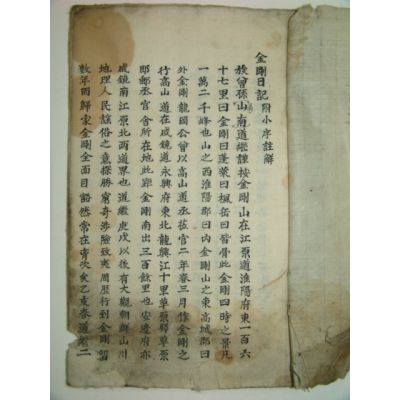 金剛日記 附小序註解
族曾孫山南道繼謹按金剛山在江原道淮陽府東一百六
十七里曰金剛曰蓬萊曰楓岳曰皆骨此金剛四時之景凡
一萬二千峰也山之西淮陽郡曰內金剛山之東高城郡曰
外金剛龍岡公曾以高山道丞在官二年春三月作金剛之
行高山道在咸鏡道永興府東北龍興江十里草原驛草原
郎郵丞官舍所在地此距金剛南出三百餘里也安邊府亦
咸鏡南江原北兩道界也道繼庚戌以後有大觀朝鮮山川
地理人民謠俗之意探勝窮奇涉險致夷周歷行到金剛留
數年而歸家金剛全面目豁然常在
乙亥春道繼二